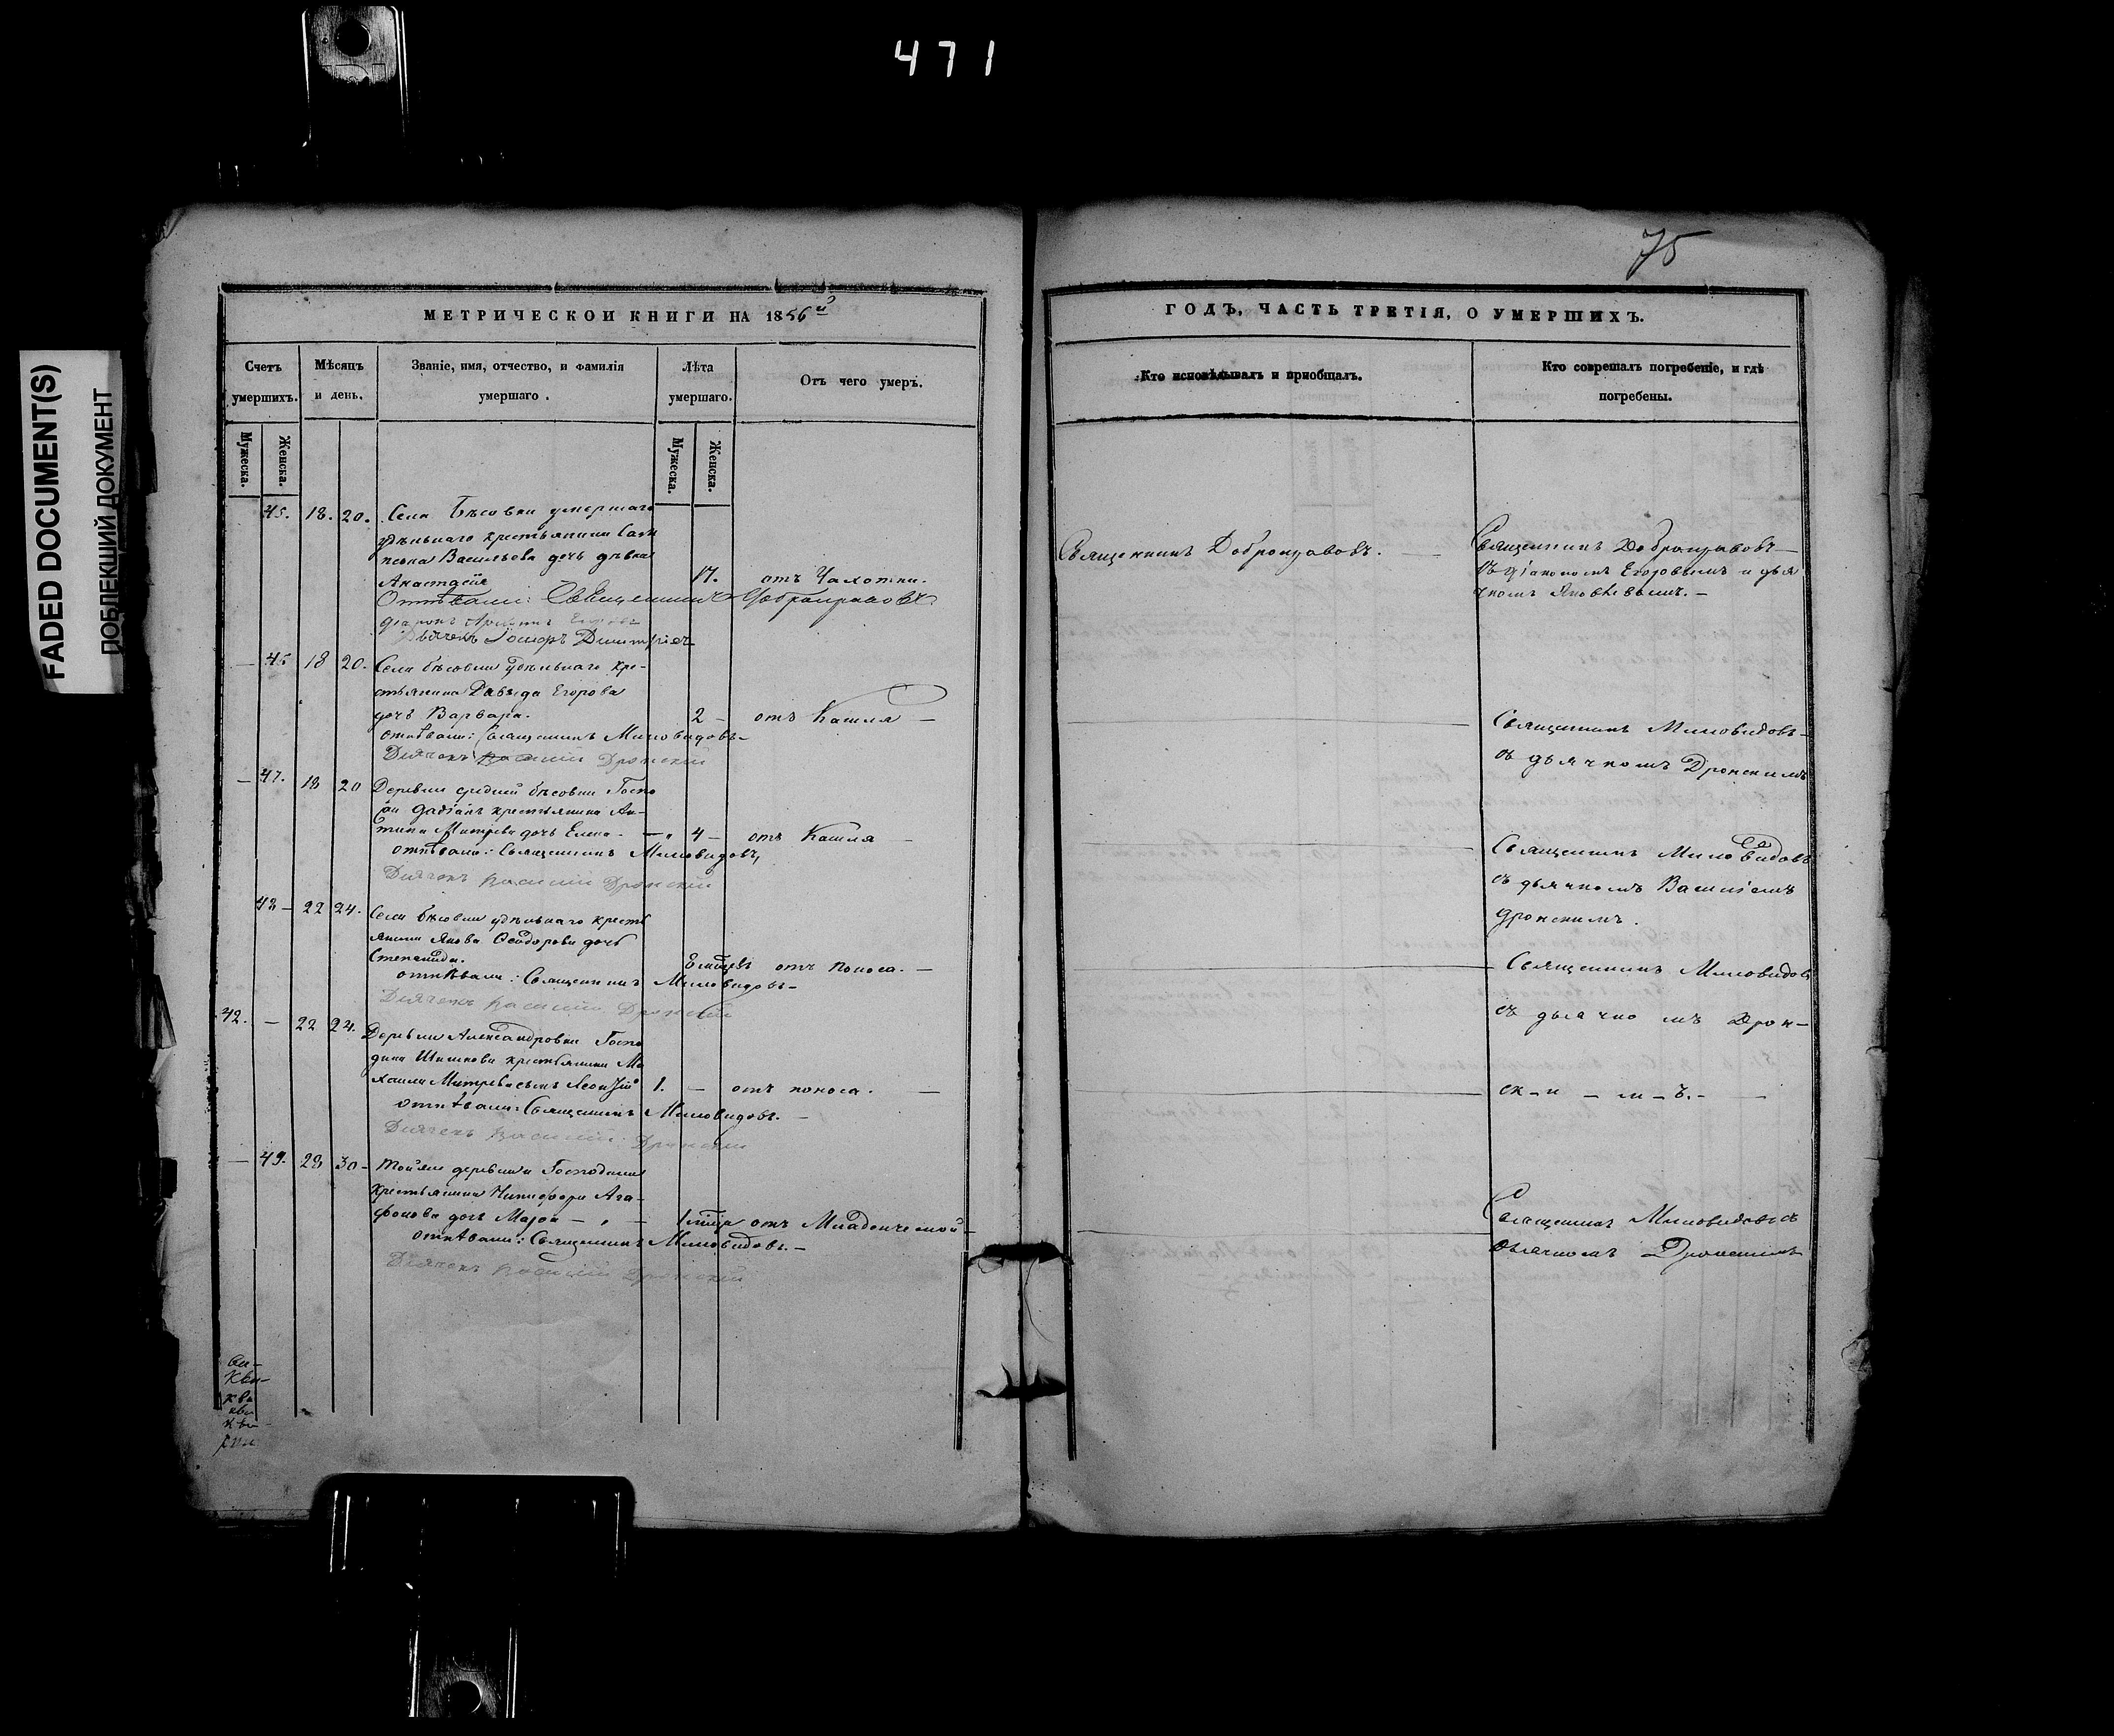 471
FADED DOCUMENT(S)
ПОБЛЕКШИЙ ДОКУМЕНТ
75
МЕТРИЧЕСКОЙ КНИГИ НА 1856й
Счетъ умершихъ.
Мѣсяцъ и день.
Званіе, имя, отчество, и фамилія умершаго.
Лѣта умершаго.
Отъ чего умеръ.
Мужеска.
Женска.
Мужеска.
Женска.
45. 18. 20. Села Бѣсовки умершаго
удѣльнаго крестьянина
Васильева дочь дѣвка
Анастасія 17. отъ Чахотки.
Отпѣвали: Священникъ Добронравовъ
Дьячекъ Димитріевъ
— 45 18 20. Села бѣсовки удѣльнаго кре-
стьянина Давыда Егорова
дочь Варвара. 2 — отъ Кашля —
отпѣвали: Священникъ Миловидовъ —
Дьячекъ Василій Дронскій
— 47. 18 20 Деревни средней бѣсовки Госпо
крестьянина Ан-
типа Митрева дочь Елена — 4 — отъ Кашля —
отпѣвали: Священникъ Миловидовъ,
Дьячекъ Василій Дронскій
48 — 22 24. Села бѣсовки удѣльнаго кресть
янина Якова Ѳеодорова дочь
Степанида. отъ поноса. —
отпѣвали: Священникъ Миловидовъ —
Дьячекъ Василій Дронскій
42. — 22 24. Деревни Александровки Госпо
дина Шишкова крестьянина Ми
хаила Митрева сынъ 1. — отъ поноса. —
отпѣвали: Священникъ Миловидовъ. —
Дьячекъ Василій Дронскій
— 49. 28 30 — Той же деревни Господина
крестьянина Никифора Ага-
фонова дочь отъ Младенческой —
отпѣвали: Священникъ Миловидовъ. —
Дьячекъ Василій Дронскій
ГОДЪ, ЧАСТЬ ТРЕТІЯ, О УМЕРШИХЪ.
Кто исповѣдывалъ и пріобщалъ.
Кто соврешалъ погребеніе, и гдѣ погребены.
Священникъ Добронравовъ. —
Священникъ Добронравовъ —
съ діакономъ Егоровымъ и дья
чкомъ Яковлевымъ. —
Священникъ Миловидовъ —
съ дьячкомъ Дронскимъ
Священникъ Миловидовъ
съ дьячкомъ Василіемъ
Дронскимъ.
Священникъ Миловидовъ
съ дьячко мъ Дрон-
ск – и – м – ъ. –
Священникъ Миловидовъ съ
дьячкомъ Дронскимъ